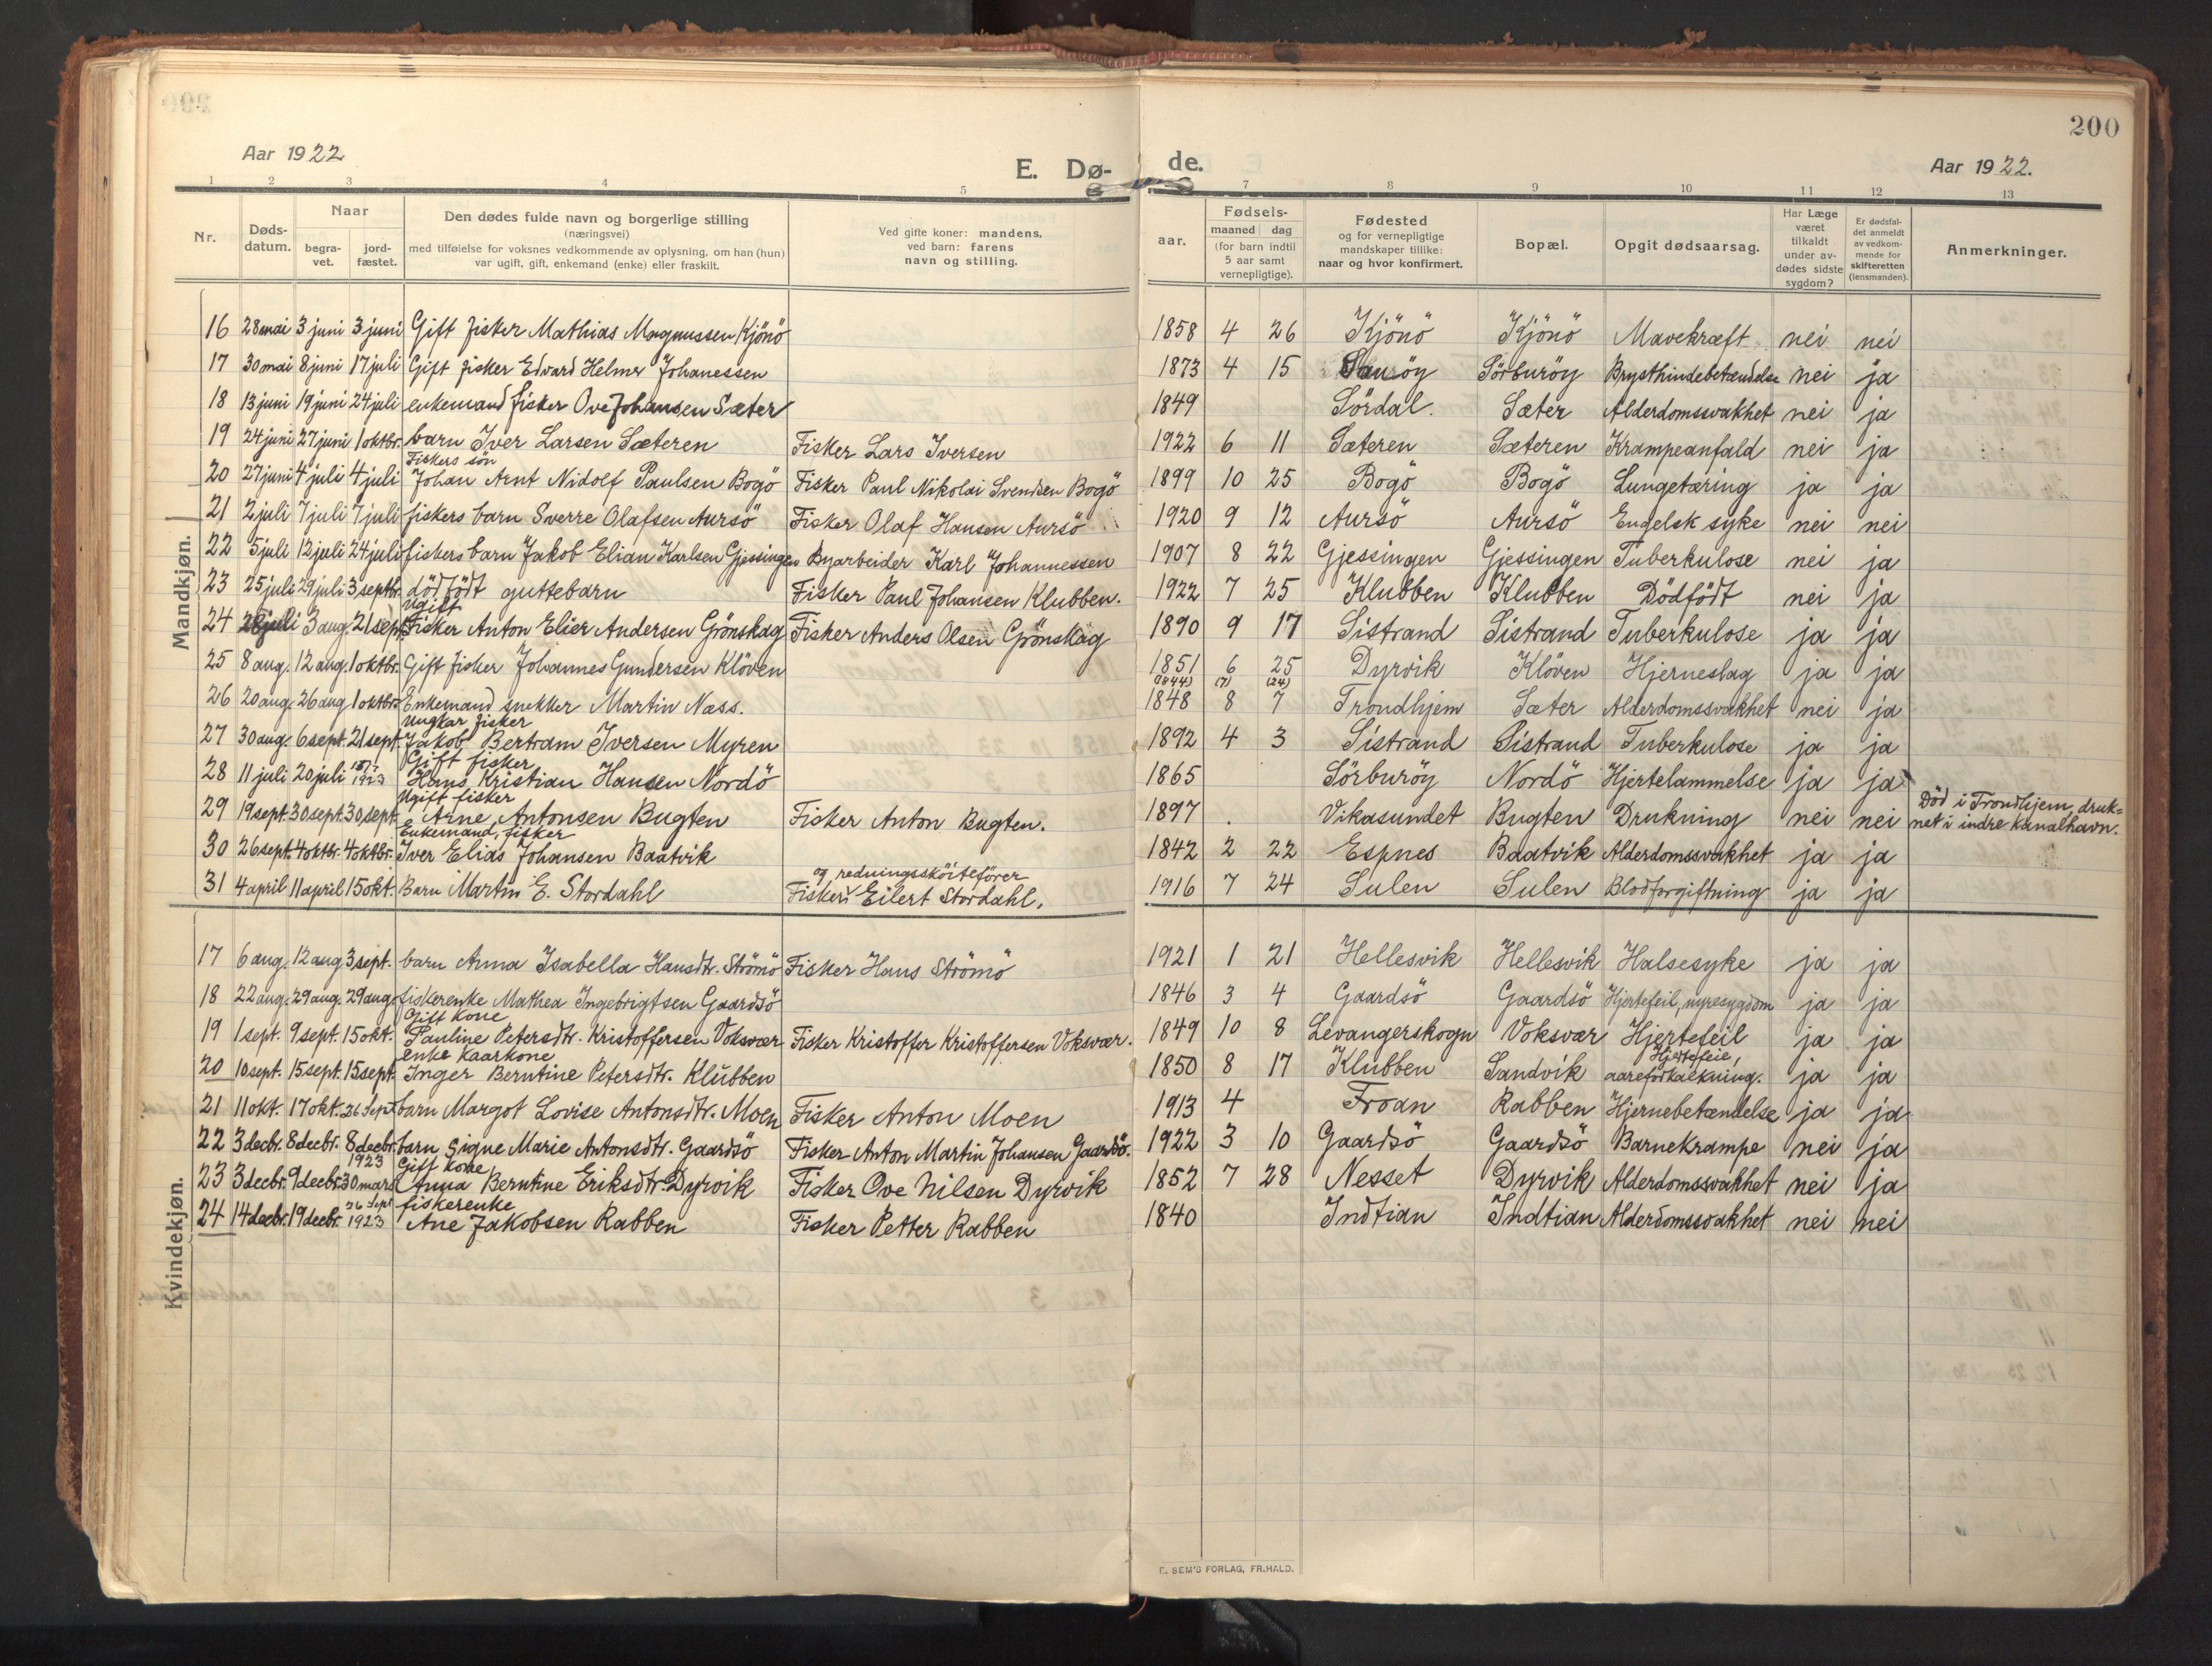 200
Aar 1922
E. Dø-
de.
Aar 1922.
1 2 3 4 5 7 8 9 10 11 12 13
Nr.
Døds-
datum.
Naar
begra-
vet.
jord-
fæstet.
Den dødes fulde navn og borgerlige stilling
(næringsvei)
med tilføielse for voksnes vedkommende av oplysning, om han (hun)
var ugift, gift, enkemand (enke) eller fraskilt.
Ved gifte koner: mandens,
ved barn: farens
navn og stilling.
aar.
Fødsels-
maaned dag
(for barn indtil
5 aar samt
vernepligtige).
Fødested
og for vernepligtige
mandskaper tillike:
naar og hvor konfirmert.
Bopæl.
Opgit dødsaarsag.
Har Læge
været
tilkaldt
under av-
dødes sidste
sygdom?
Er dødsfal-
det anmeldt
av vedkom-
mende for
skifteretten
(lensmanden).
Anmerkninger.
Mandkjøn.
16 28 mai 3 juni 3 juni Gift fisker Mathias Magnussen Kjönö 1858 4 26 Kjönö Kjönö Mavekræft nei nei
17 30 mai 8 juni 17 juli Gift fisker Edvard Helmer Johanessen 1873 4 15 Sauröy Sörburöy Brysthindebetændelse nei ja
18 13 juni 19 juni 24 juli enkemand fisker Ove Johansen Sæter 1849 Sördal. Sæter Alderdomssvakhet nei ja
19 24 juni 27 juni 1 oktbr. barn Iver Larsen Sæteren Fisker Lars Iversen 1922 6 11 Sæteren Sæteren Krampeanfald nei ja
Fiskers sön
20 27 juni 4 juli 4 juli Johan Arnt Nidolf Paulsen Bogö Fisker Paul Nikolai Svendsen Bogö 1899 10 25 Bogö Bogö Lungetæring ja ja
21 2 juli 7 juli 7 juli fiskers barn Sverre Olafsen Aursö Fisker Olaf Hansen Aursö 1920 9 12 Aursö Aursö Engelsk syke nei nei
22 5 juli 12 juli 24 juli fiskers barn Jakob Elian Karlsen Gjessingen Byarbeider Karl Johannessen 1907 8 22 Gjessingen Gjessingen Tuberkulose nei ja
23 25 juli 29 juli 3 septbr. dödfödt guttebarn Fisker Paul Johansen Klubben. 1922 7 25 Klubben Klubben Dödfödt nei ja
Ugift
24 juli 3 aug. 21 sept. Fisker Anton Elier Andersen Grönskag Fisker Anders Olsen Grönskag 1890 9 17 Sistrand Sistrand Tuberkulose ja ja
25 8 aug. 12 aug. 1 oktbr. Gift fisker Johannes Gundersen Klöven 1851 6 25 Dyrvik Klöven Hjerneslag ja ja
(1844) (7) (24)
26 20 aug. 26 aug. 1 oktbr. Enkemand snekker Martin Næss. 1848 8 7 Trondhjem Sæter Alderdomssvakhet nei ja
Ungkar fisker
27 30 aug. 6 sept. 21 sept. Jakob Bertram Iversen Myren 1892 4 3 Sistrand Sistrand Tuberkulose ja ja
Gift fisker
28 11 juli 20 juli 1923 Hans Kristian Hansen Nordö 1865 Sörburöy Nordö Hjertelammelse ja ja
Ugift fisker
29 19 sept. 30 sept. 30 sept. Arne Antonsen Bugten Fisker Anton Bugten. 1897 Vikasundet Bugten Drukning nei nei Död i Trondhjem, druk-
net i indre kanalhavn.
Enkemand, fisker
30 26 sept. 4 oktbr. 4 oktbr. Iver Elias Johansen Baatvik 1842 2 22 Espnes Baatvik Alderdomssvakhet ja ja
og redningsköiteförer
31 4 april 11 april 15 okt. Barn Martin E. Stordahl Fisker Eilert Stordahl. 1916 7 24 Sulen Sulen Blodforgiftning ja ja
Kvindekjøn.
17 6 aug. 12 aug. 3 sept. barn Anna Isabella Hansdtr. Strömö Fisker Hans Strömö 1921 1 21 Hellesvik Hellesvik Halsesyke ja ja
18 22 aug. 29 aug. 29 aug. fiskerenke Mathea Ingebrigtsen Gaardsö 1846 3 4 Gaardsö Gaardsö Hjertefeil, nyresygdom ja ja
Gift kone
19 1 sept. 9 sept. 15 okt. Pauline Petersdtr. Kristoffersen Voksvær Fisker Kristoffer Kristoffersen Voksvær. 1849 10 8 Levangerskogn Voksvær Hjertefeil ja ja
enke kaarkone
20 10 sept. 15 sept. 15 sept. Inger Berntine Petersdtr. Klubben 1850 8 17 Klubben Sandvik Hjertefeil, aareforkalkning. ja ja
21 11 okt. 17 okt. 26 Sept barn Margot Lovise Antonsdtr. Moen Fisker Anton Moen 1913 4 Froan Rabben Hjernebetændelse ja ja
22 3 decbr. 8 decbr. 8 decbr. barn Signe Marie Antonsdtr. Gaardsö Fisker Anton Martin Johansen Gaardsö. 1922 3 10 Gaardsö Gaardsö Barnekrampe nei ja
1923 Gift kone
23 3 decbr. 9 decbr. 30 mars Anna Berntine Eriksdtr. Dyrvik Fisker Ove Nilsen Dyrvik 1852 7 28 Nesset Dyrvik Alderdomssvakhet nei ja
26 Sept fiskerenke
24 14 decbr. 19 decbr. 1923 Ane Jakobsen Rabben Fisker Petter Rabben 1840 Indtian Indtian Alderdomssvakhet nei nei
E. SEM'S FORLAG, FR.HALD.